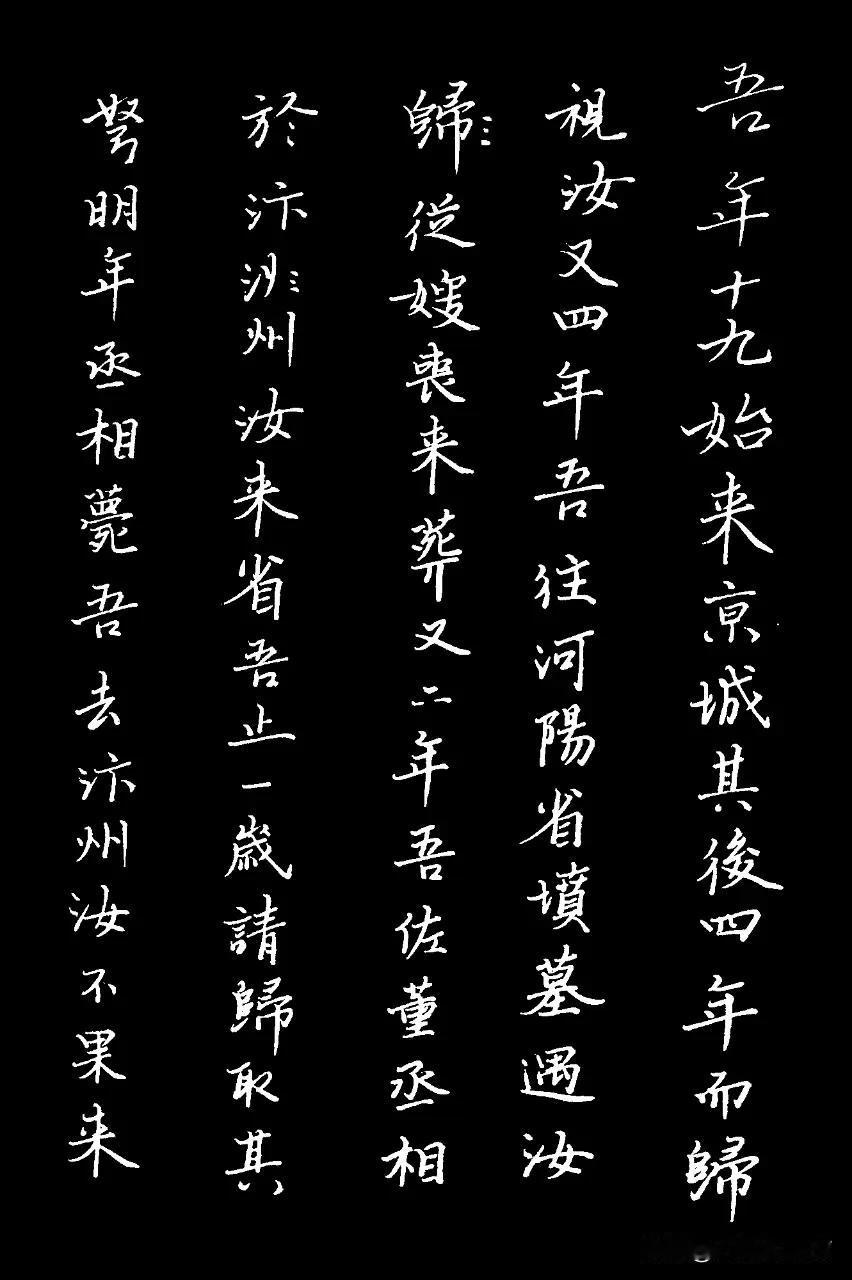 吾年十九始来亰城其後四年而歸
視汝又四年吾往河陽省墳墓遇汝
歸從嫂喪来葬又二年吾佐董丞相
於汴州汝来省吾止一歲請歸取其
孥明年丞相薨吾去汴州汝不果来